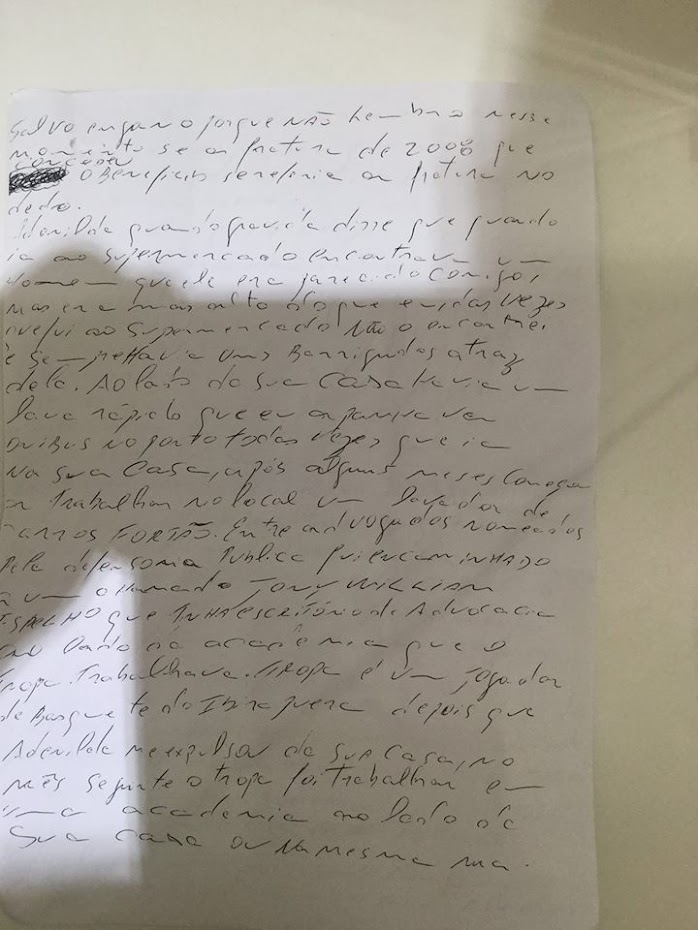 Salvo engano porque NÃO lembro nesse
momento se a fratura de 2008 que
conceder
o Beneficio sereferia a fratura no
dedo.
Adenilda quando gravida disse que quando
ia ao supermercado encontrava um
Homem que ele era parecido comigo,
mas era mais alto do que eu, das vezes
que fui ao supermercado Não o encontrei
e sempre Havia uns Barrigudos atraz
dela. Ao lado da sua casa Havia um
lava rápido que eu
ONIBUS no ponto todas vezes que ia
na sua casa, após alguns meses começou
a Trabalhar no local um lavador de
carros FORTÃO. Entre advogados nomeados
pela defensoria Publica fui encaminhado
a um chamado TONY WILLIAM
ESPELHO que TINHA escritório de Advocacia
ao lado da academia que o
tropa Trabalhava. Tropa é um jogador
de Basquete do Ibirapuera depois que
Adenilda me expulsou da sua casa, no
mês seguinte o tropa foi trabalhar em
uma academia ao lado da
sua casa ou Na mesma rua.